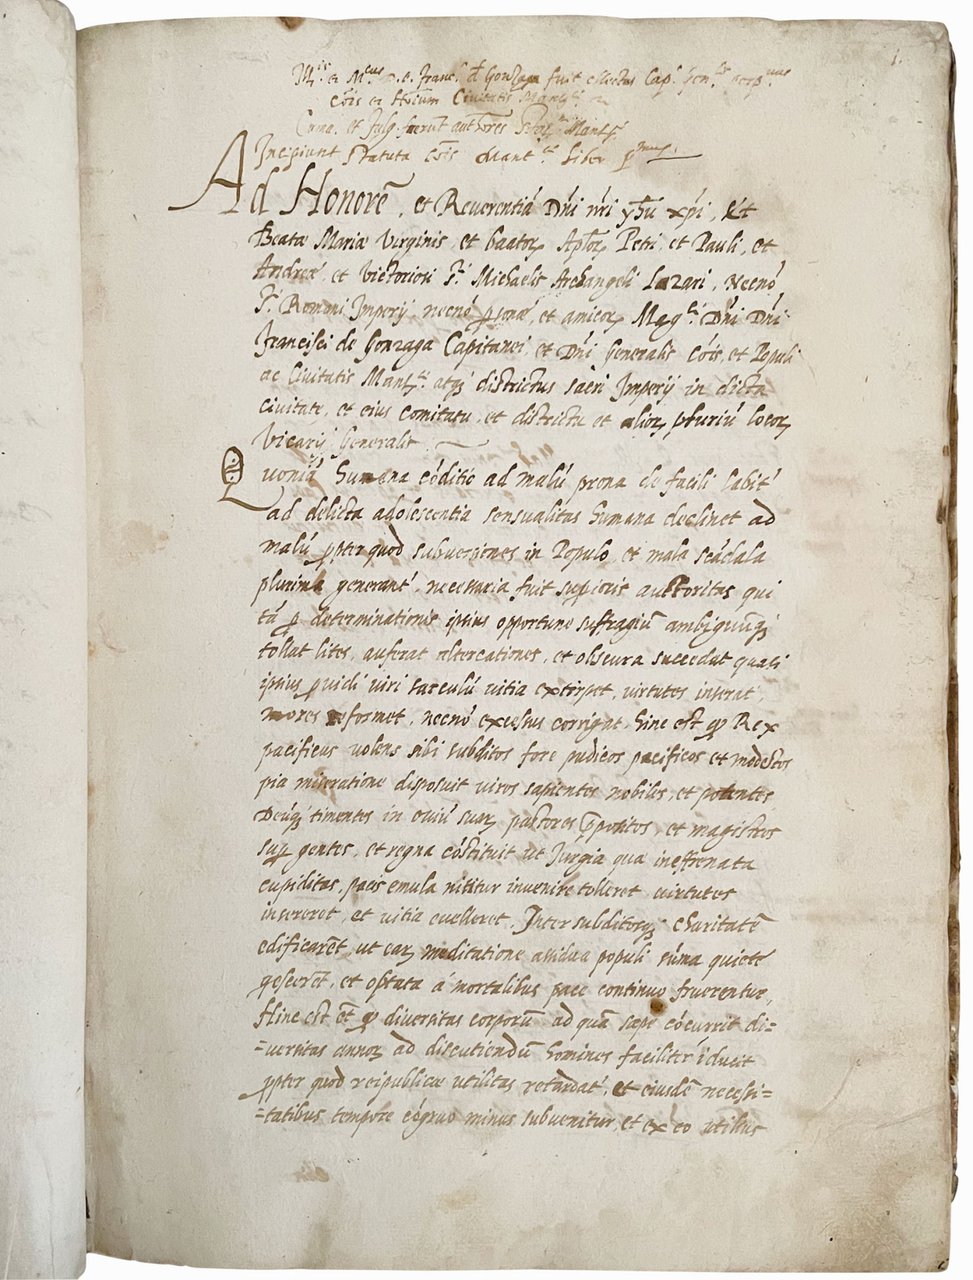 1.
Ill.is et M.cus D. D. Franc.s de Gonzaga fuit electus Cap.s gen.lis
Cōis et Civitatis Mant.
et fuerūt authores Mant.
Incipiunt Statuta cōis Mant.ę Liber pmus.
Ad Honorē, et Reverentiā Dn̄i nr̄i yh̄u xp̄i, Et
Beatæ Mariæ Virginis, et baatoꝝ Apl̄oꝝ Petri, et Pauli, et
Andreæ, et Victorion Michaelis Archangeli Lazari, Necnō
S. Romani Imperij, necnō et amicoꝝ Mag.ci Dn̄i Dn̄i
Francisci de Gonzaga Capitanei, et Dn̄i Generalis Cōis, et Populi
ac Civitatis Mant. atqꝫ districtus sacri Imperij in dicta
civitate, et eius comitatu, et districtu et alioꝝ pluriū locoꝝ
Vicarij Generalis
Quoniā humana cōditio ad malū prona de facili labit᷑
ad delicta adolescentia sensualitas humana declinet ad
malū ꝓpter quod subversiones in Populo, et mala scādala
plurima generant᷑, necessaria fuit suꝑioris auctoritas qui
tā ꝑ determinationis ipsius opportune suffragiū
tollat lites, auferat altercationes, et obscura succedat quasi
ipsius ꝓvidi viri sarculū vitia extirpet, virtutes inserat,
mores reformet, necnō excessus corrigat. Hinc est ꝙ Rex
pacificus volens sibi subditos fore pudicos pacificos et modestos
pia miseratione disposuit viros sapientes nobiles, et potentes
Deūqꝫ timentes in oviū suaꝝ pastores p̄positos, et magistros
suꝑ gentes, et regna cōstituit ut Jurgia quæ ineffrenata
cupiditas, paes emula nititur invenire tolleret virtutes
insereret, et vitia evelleret, Inter subditosqꝫ charitatē
edificarēt, ut eaꝝ meditatione assidua populi sūma quietē
gescerēt, et optata á mortalibus pace continuo fruerentur,
Hinc est et̄ ꝙ diversitas corporū ad quā sæpe cōcurrit di=
=versitas aīmoꝝ ad discutiendū homines faciliter īducit
ꝓpter quod reipublicæ utilitas retardat᷑, et eiusdē necessi=
=tatibus tempore cōgruo minus subvenitur, et ex eo utilius